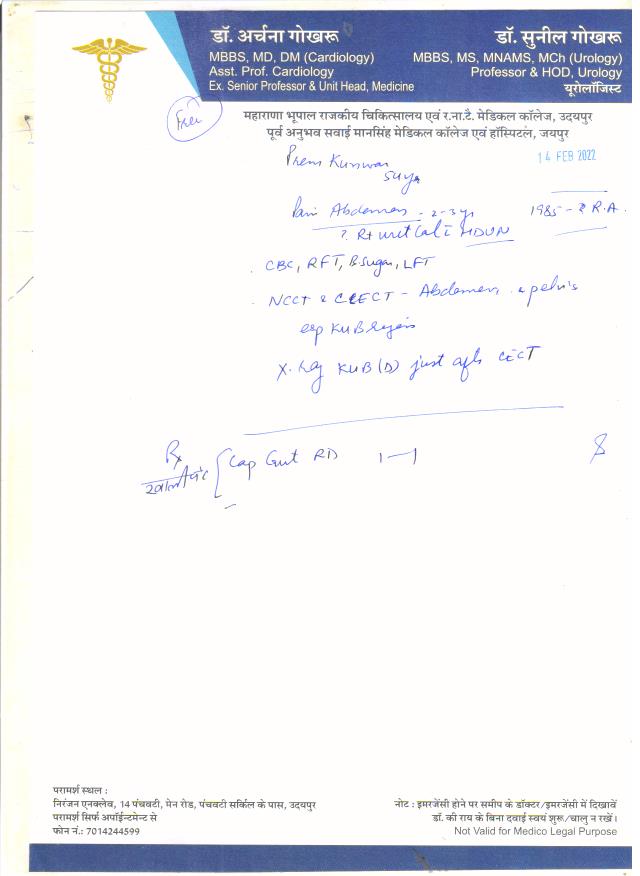 डॉ. अर्चना गोखरू
MBBS, MD, DM (Cardiology)
Asst. Prof. Cardiology
Ex. Senior Professor & Unit Head, Medicine
डॉ. सुनील गोखरू
MBBS, MS, MNAMS, MCh (Urology)
Professor & HOD, Urology
यूरोलॉजिस्ट
Free
महाराणा भूपाल राजकीय चिकित्सालय एवं र.ना.टै. मेडिकल कॉलेज, उदयपुर
पूर्व अनुभव सवाई मानसिंह मेडिकल कॉलेज एवं हॉस्पिटल, जयपुर
Prem Kunwar
14 FEB 2022
Pain Abdomen - 2-3 yr
1985 - R.A.
? Rt HDUN
CBC, RFT, B.Sugar, LFT
NCCT & CECT - Abdomen & pelvis
esp KUB region
X-Ray KUB (D) just after CECT
Rx
Cap RD 1—1
परामर्श स्थल :
निरंजन एनक्लेव, 14 पंचवटी, मेन रोड, पंचवटी सर्किल के पास, उदयपुर
परामर्श सिर्फ अपॉईन्टमेन्ट से
फोन नं.: 7014244599
नोट : इमरजेंसी होने पर समीप के डॉक्टर/इमरजेंसी में दिखावें
डॉ. की राय के बिना दवाई स्वयं शुरू/चालु न रखें।
Not Valid for Medico Legal Purpose